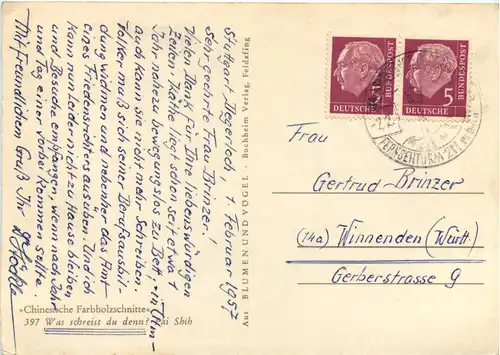 Stuttgart Degerloch, 1. Februar 1957
Sehr geehrte Frau Brinzer!
Vielen Dank für Ihre liebenswürdigen
Zeilen. Käthe liegt schon seit etwa 1
Jahr nahezu bewegungslos zu Bett, in Ulm
auch kann sie nicht mehr schreiben.
Volker muß sich seiner Berufsausbil-
dung widmen und nebenher das Amt
eines Friedensrichters ausüben. Und ich
kann nun leider nicht zu Hause bleiben
und Besuche empfangen, wenn nach Jahr
und Tag einer vorbei kommen sollte.
Mit freundlichem Gruß Ihr
»Chinesische Farbholzschnitte«
397 Was schreist du denn? Pai Shih
Aus BLUMEN UND VÖGEL · Buchheim Verlag, Feldafing
DEUTSCHE BUNDESPOST
5
DEUTSCHE BUNDESPOST
FERNSEHTURM 211 m
Frau
Gertrud Brinzer
(14a) Winnenden (Württ.)
Gerberstrasse 9